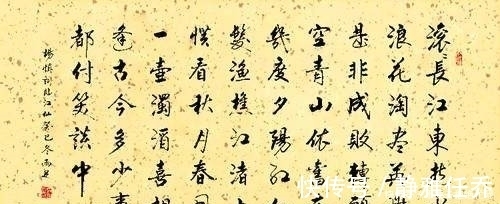 滚長江東逝
浪花淘尽英
是非成敗轉頭
空青山依舊
幾度夕陽紅
髮漁樵江渚
慣看秋月春
一壺濁酒喜相
逢古今多少事
都付笑談中
楊慎词臨江仙癸巳冬
快传号